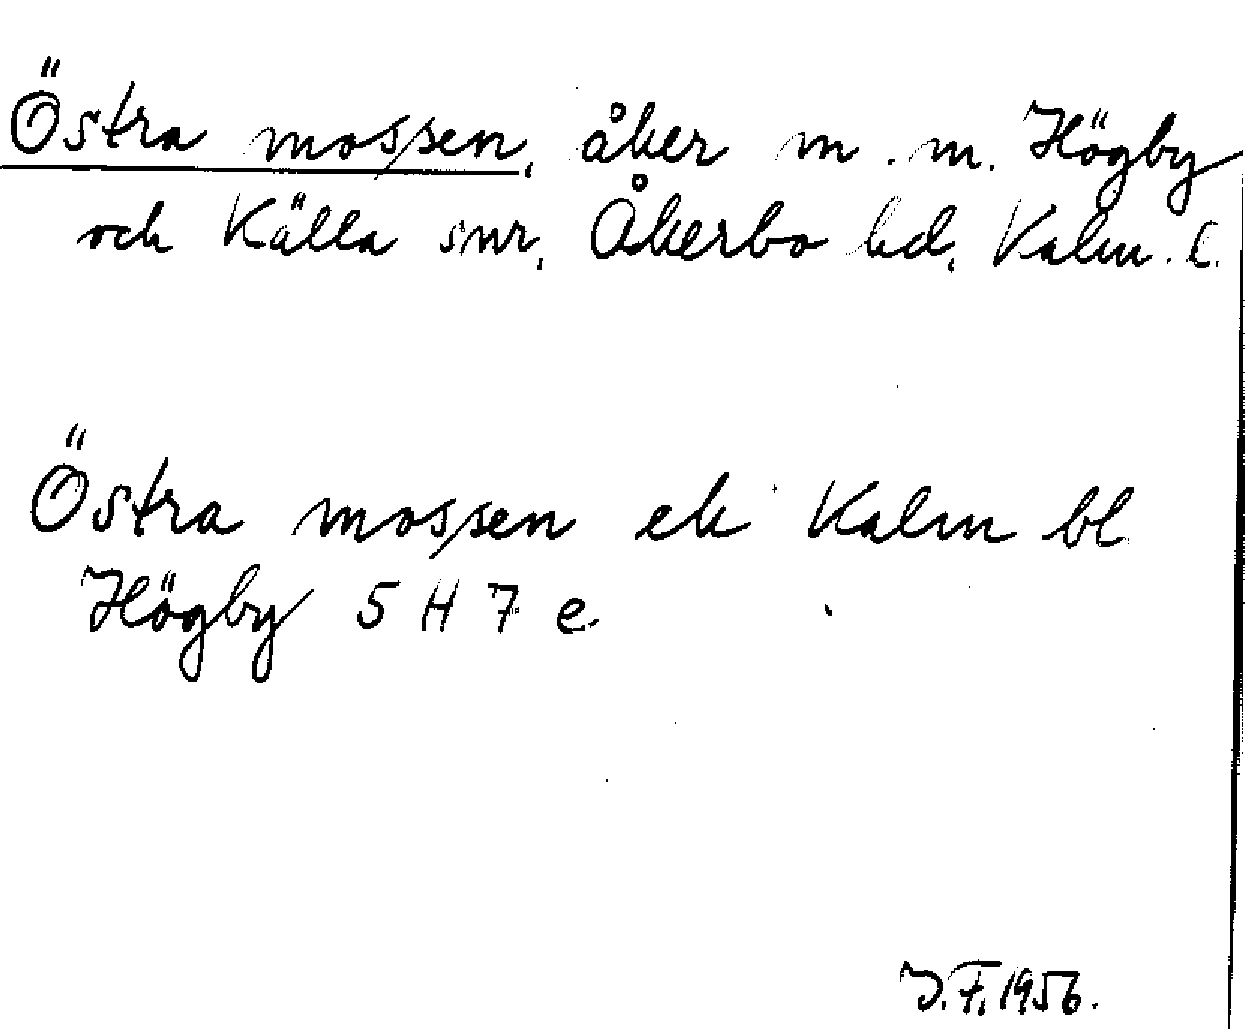 Östra mossen, åker m.m. Högby
och Källa snr, Åkerbo hd, Kalm. l.
Östra mossen ek Kalm bl
Högby 5 H 7 e.
J.F. 1956.